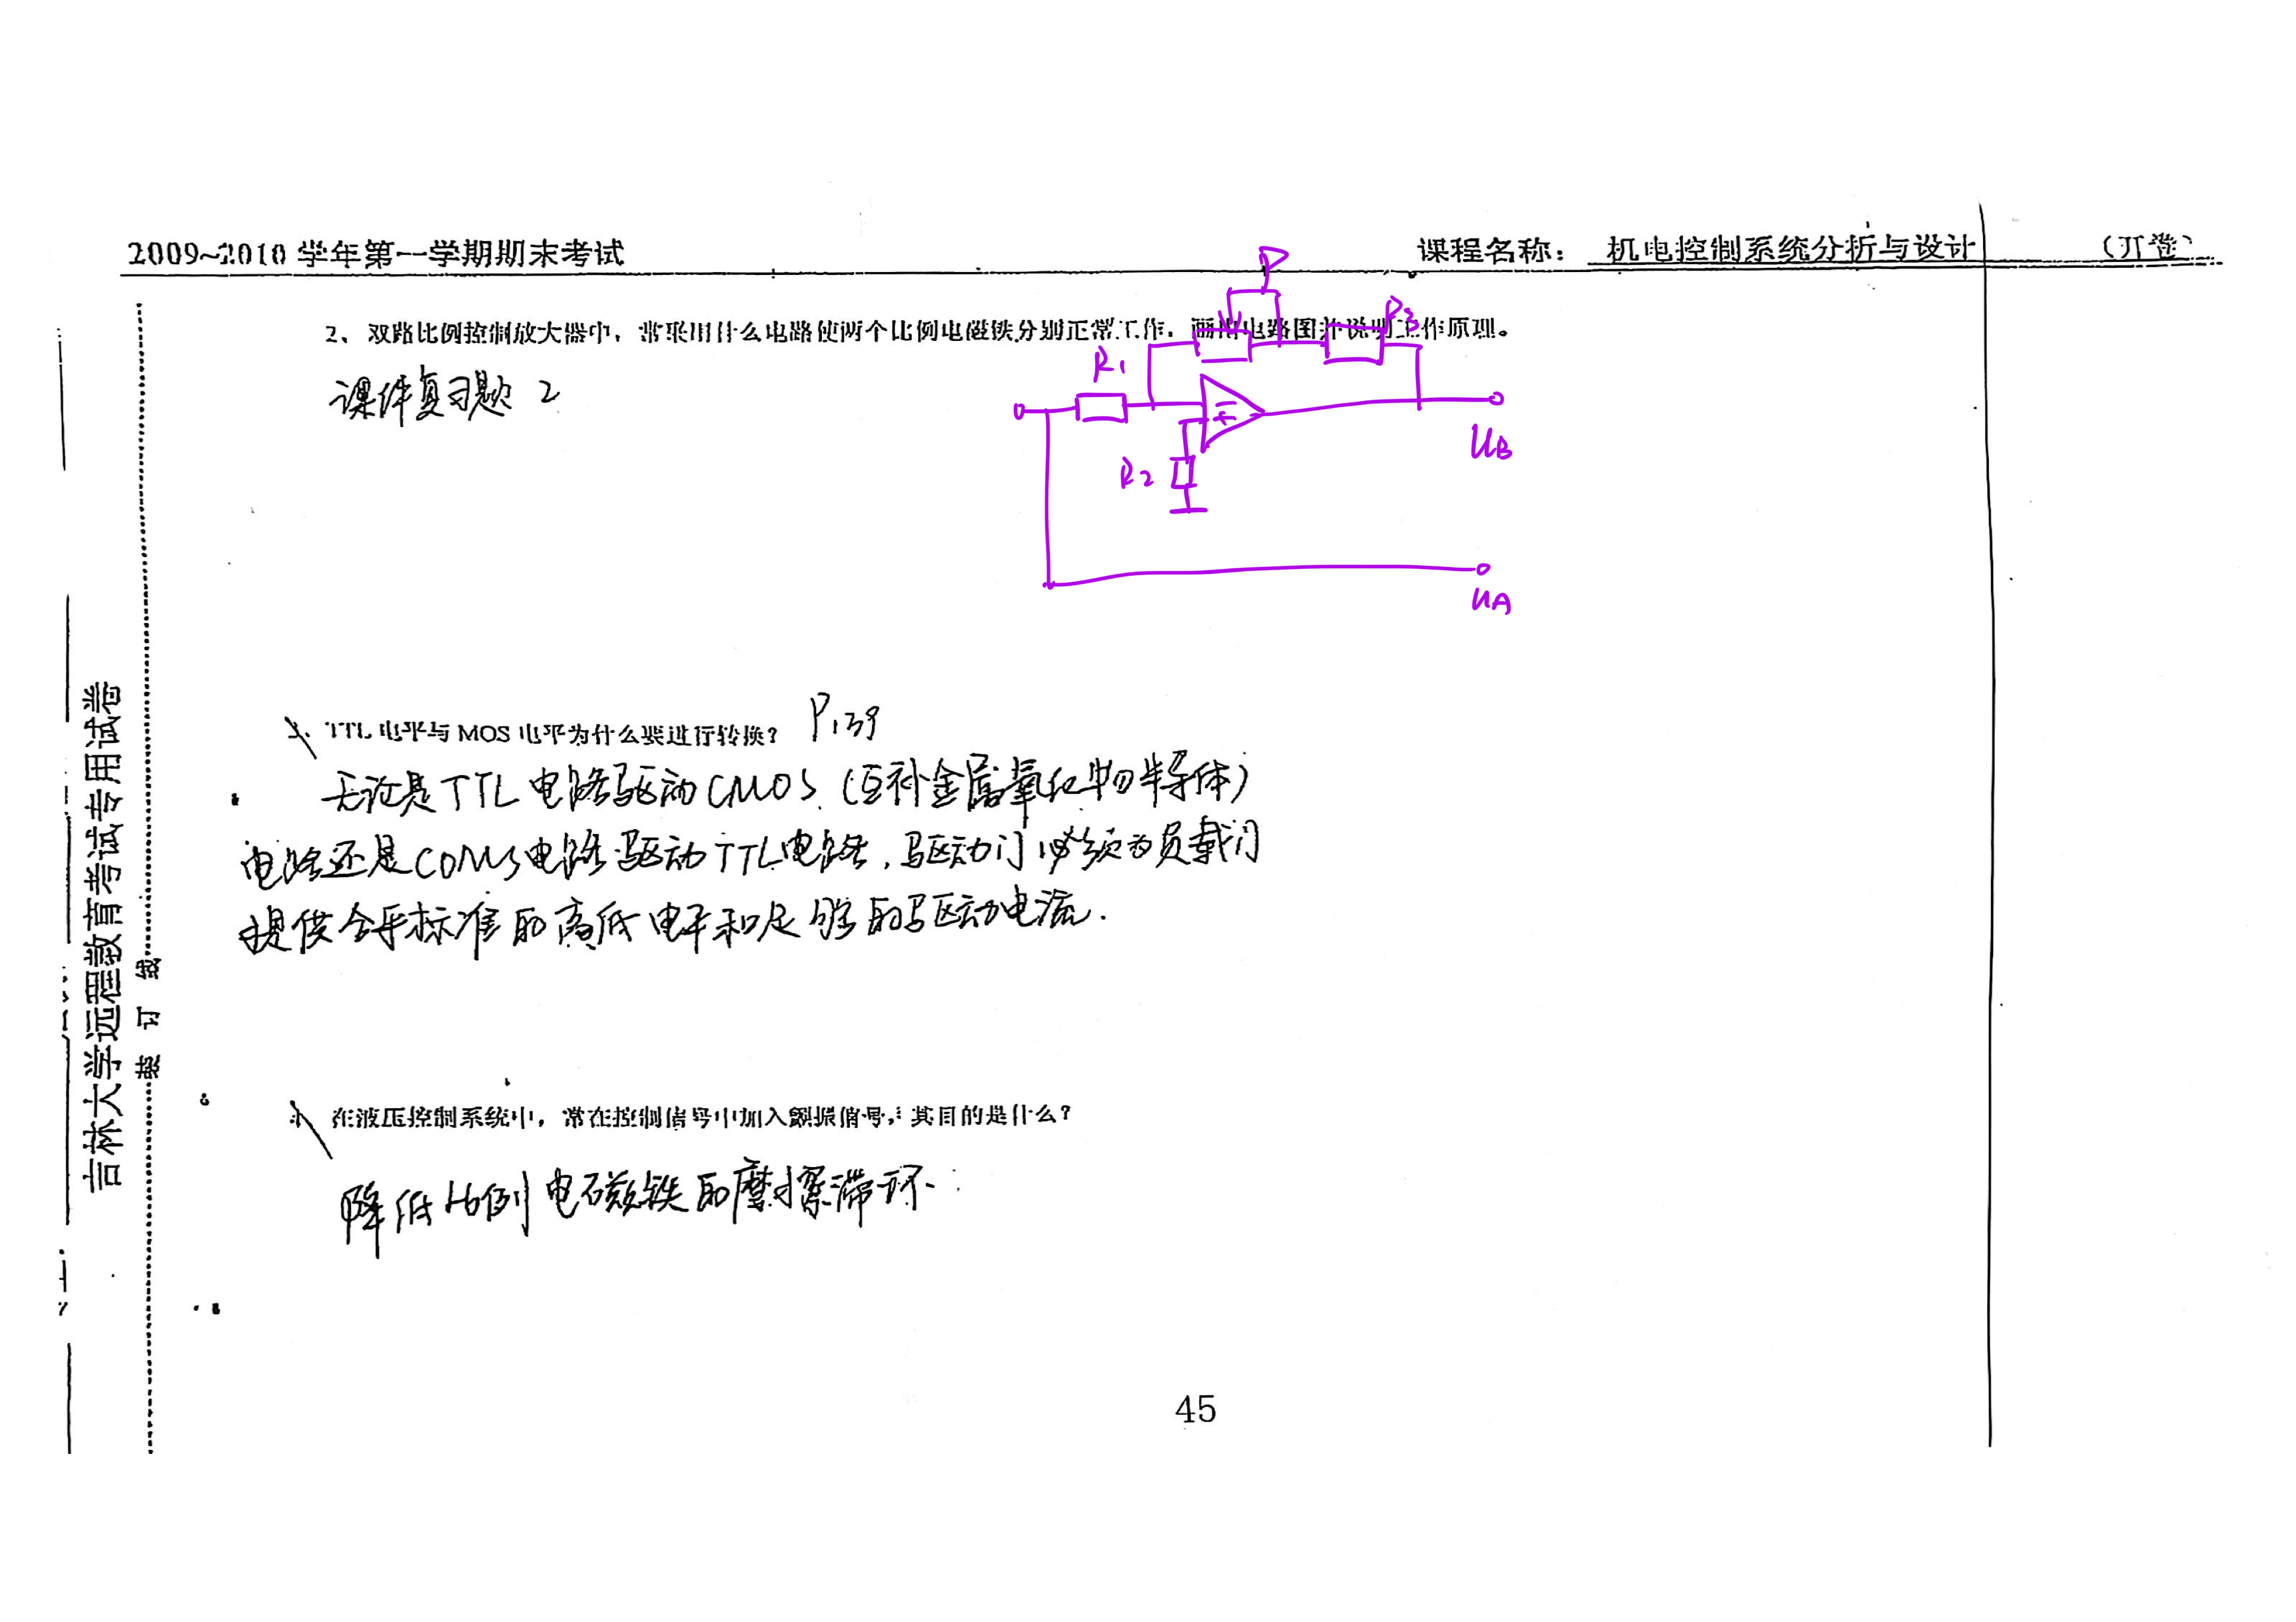 2009~2010 学年第一学期期末考试
课程名称： 机电控制系统分析与设计 （开卷）
2、双路比例控制放大器中，常采用什么电路使两个比例电磁铁分别正常工作，画出电路图并说明工作原理。
课件复习题 2
P
R3
R1
R2
UB
UA
3、TTL 电平与 MOS 电平为什么要进行转换？ P139
无论是TTL电路驱动CMOS（互补金属氧化物半导体）
电路还是COMS电路驱动TTL电路，驱动门必须为负载门
提供合乎标准的高低电平和足够的驱动电流.
在液压控制系统中，常在控制信号中加入颤振信号，其目的是什么？
降低比例电磁铁的摩擦滞环.
吉林大学远程教育考试专用试卷
装 订 线
45